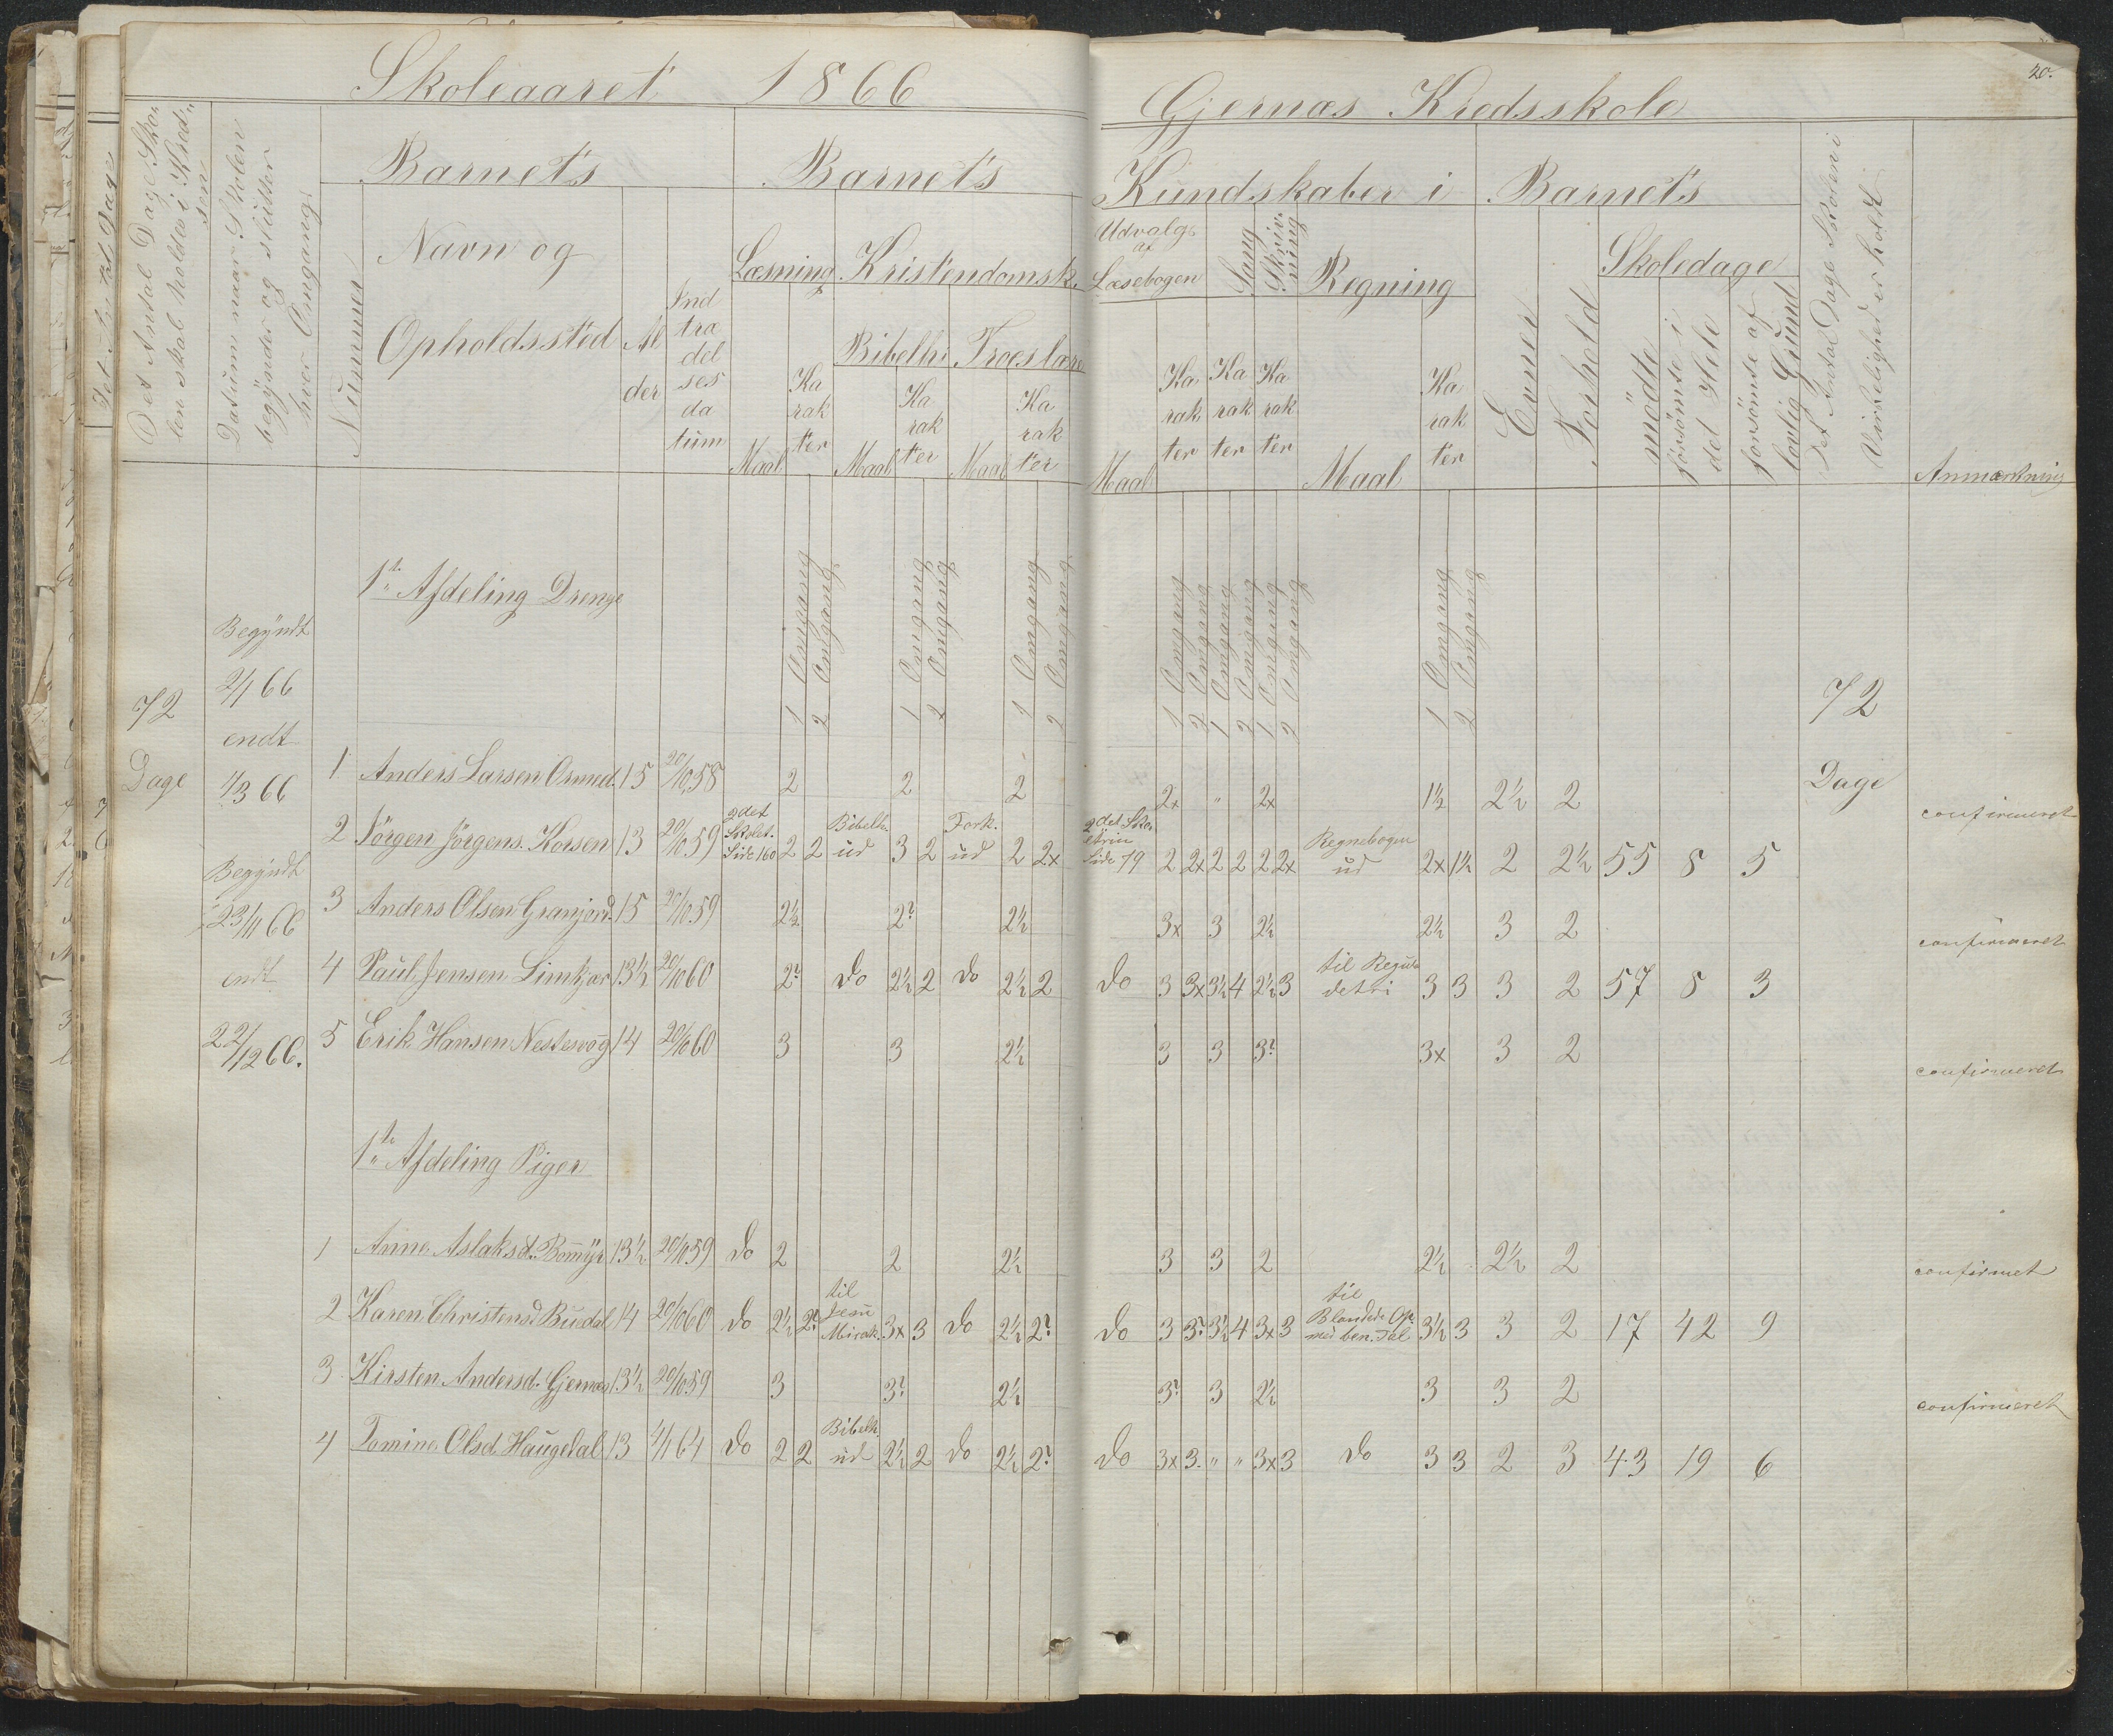 Skoleaaret 1866
Gjernæs Kredsskole
20.
Det Antal Dage Sko-
len skal holdes i Kred-
sen
Datum naar Skolen
begynder og slutter
hver Omgang.
Barnets
Nummer
Navn og
Opholdssted
Al
der
Ind
træ
del
ses
da
tum
Barnets
Læsning
Maal
Ka
rak
ter
Kristendomsk.
Bibelhi
Maal
Ka
rak
ter
Troeslære
Maal
Ka
rak
ter
Kundskaber i
Udvalg
af
Læsebogen
Maal
Ka
rak
ter
Sang
Ka
rak
ter
Skriv-
ning
Ka
rak
ter
Regning
Maal
Ka
rak
ter
Barnets
Evner
Forhold
Skoledage
mødte
forsømte i
det Hele
forsømte af
lovlig Grund
Det Antal Dage Skolen i
Virkelighed er holdt
Anmærkning
1 Omgang 2 Omgang 1 Omgang 2 Omgang 1 Omgang 2 Omgang
1 Omgang 2 Omgang 1 Omgang 2 Omgang 1 Omgang 2 Omgang 1 Omgang 2 Omgang
72
Dage
Begyndt
2/1 66
endt
1/3 66
Begyndt
23/11 66
endt
22/12 66.
72
Dage
1te Afdeling Drenge
1 Anders Larsen 15 20/10 58 2 2 2 2x " 2x 1½ 2½ 2 confirmeret
2 Jörgen Jörgens. Korsen 13 20/10 59 2det Skolet. Side 160 2 2 Bibelh. ud 3 2 Fork. ud 2 2x 2det Side 79 2 2x 2 2 2 2x Regnebogen ud 2x 1½ 2 2½ 55 8 5
3 Anders Olsen Granjord 15 20/10 59 2½ 2? 2½ 3x 3 2½ 2½ 3 2 confirmeret
4 Paul Jensen Limkjær 13½ 20/10 60 2? do 2½ 2 do 2½ 2 do 3 3x 3½ 4 2½ 3 til Regula detri 3 3 3 2 57 8 3
5 Erik Hansen Nestesvog 14 20/10 60 3 3 2½ 3 3 3? 3x 3 2 confirmeret
1te Afdeling Piger
1 Anne Aslaksd. Bomyr 13½ 20/10 59 do 2 2 2½ 3 3 2 2½ 2½ 2 confirmet
2 Karen Christensd. Budal 14 20/10 60 do 2½ 2? til Jesu Mirak. 3x 3 do 2½ 2? do 3 3? 3½ 4 3x 3 til Blandede Op. med ben. Tal 3½ 3 3 2 17 42 9
3 Kirsten Andersd. Gjernæs 13½ 20/10 59 3 3? 2½ 3? 3 2½ 3 3 2 confirmeret
4 Tomine Olsd. Haugedal 13 4/1 64 do 2 2 Bibelh. ud 2½ 2 do 2½ 2? do 3x 3. " " 3x 3 do 3 3 2 3 43 19 6